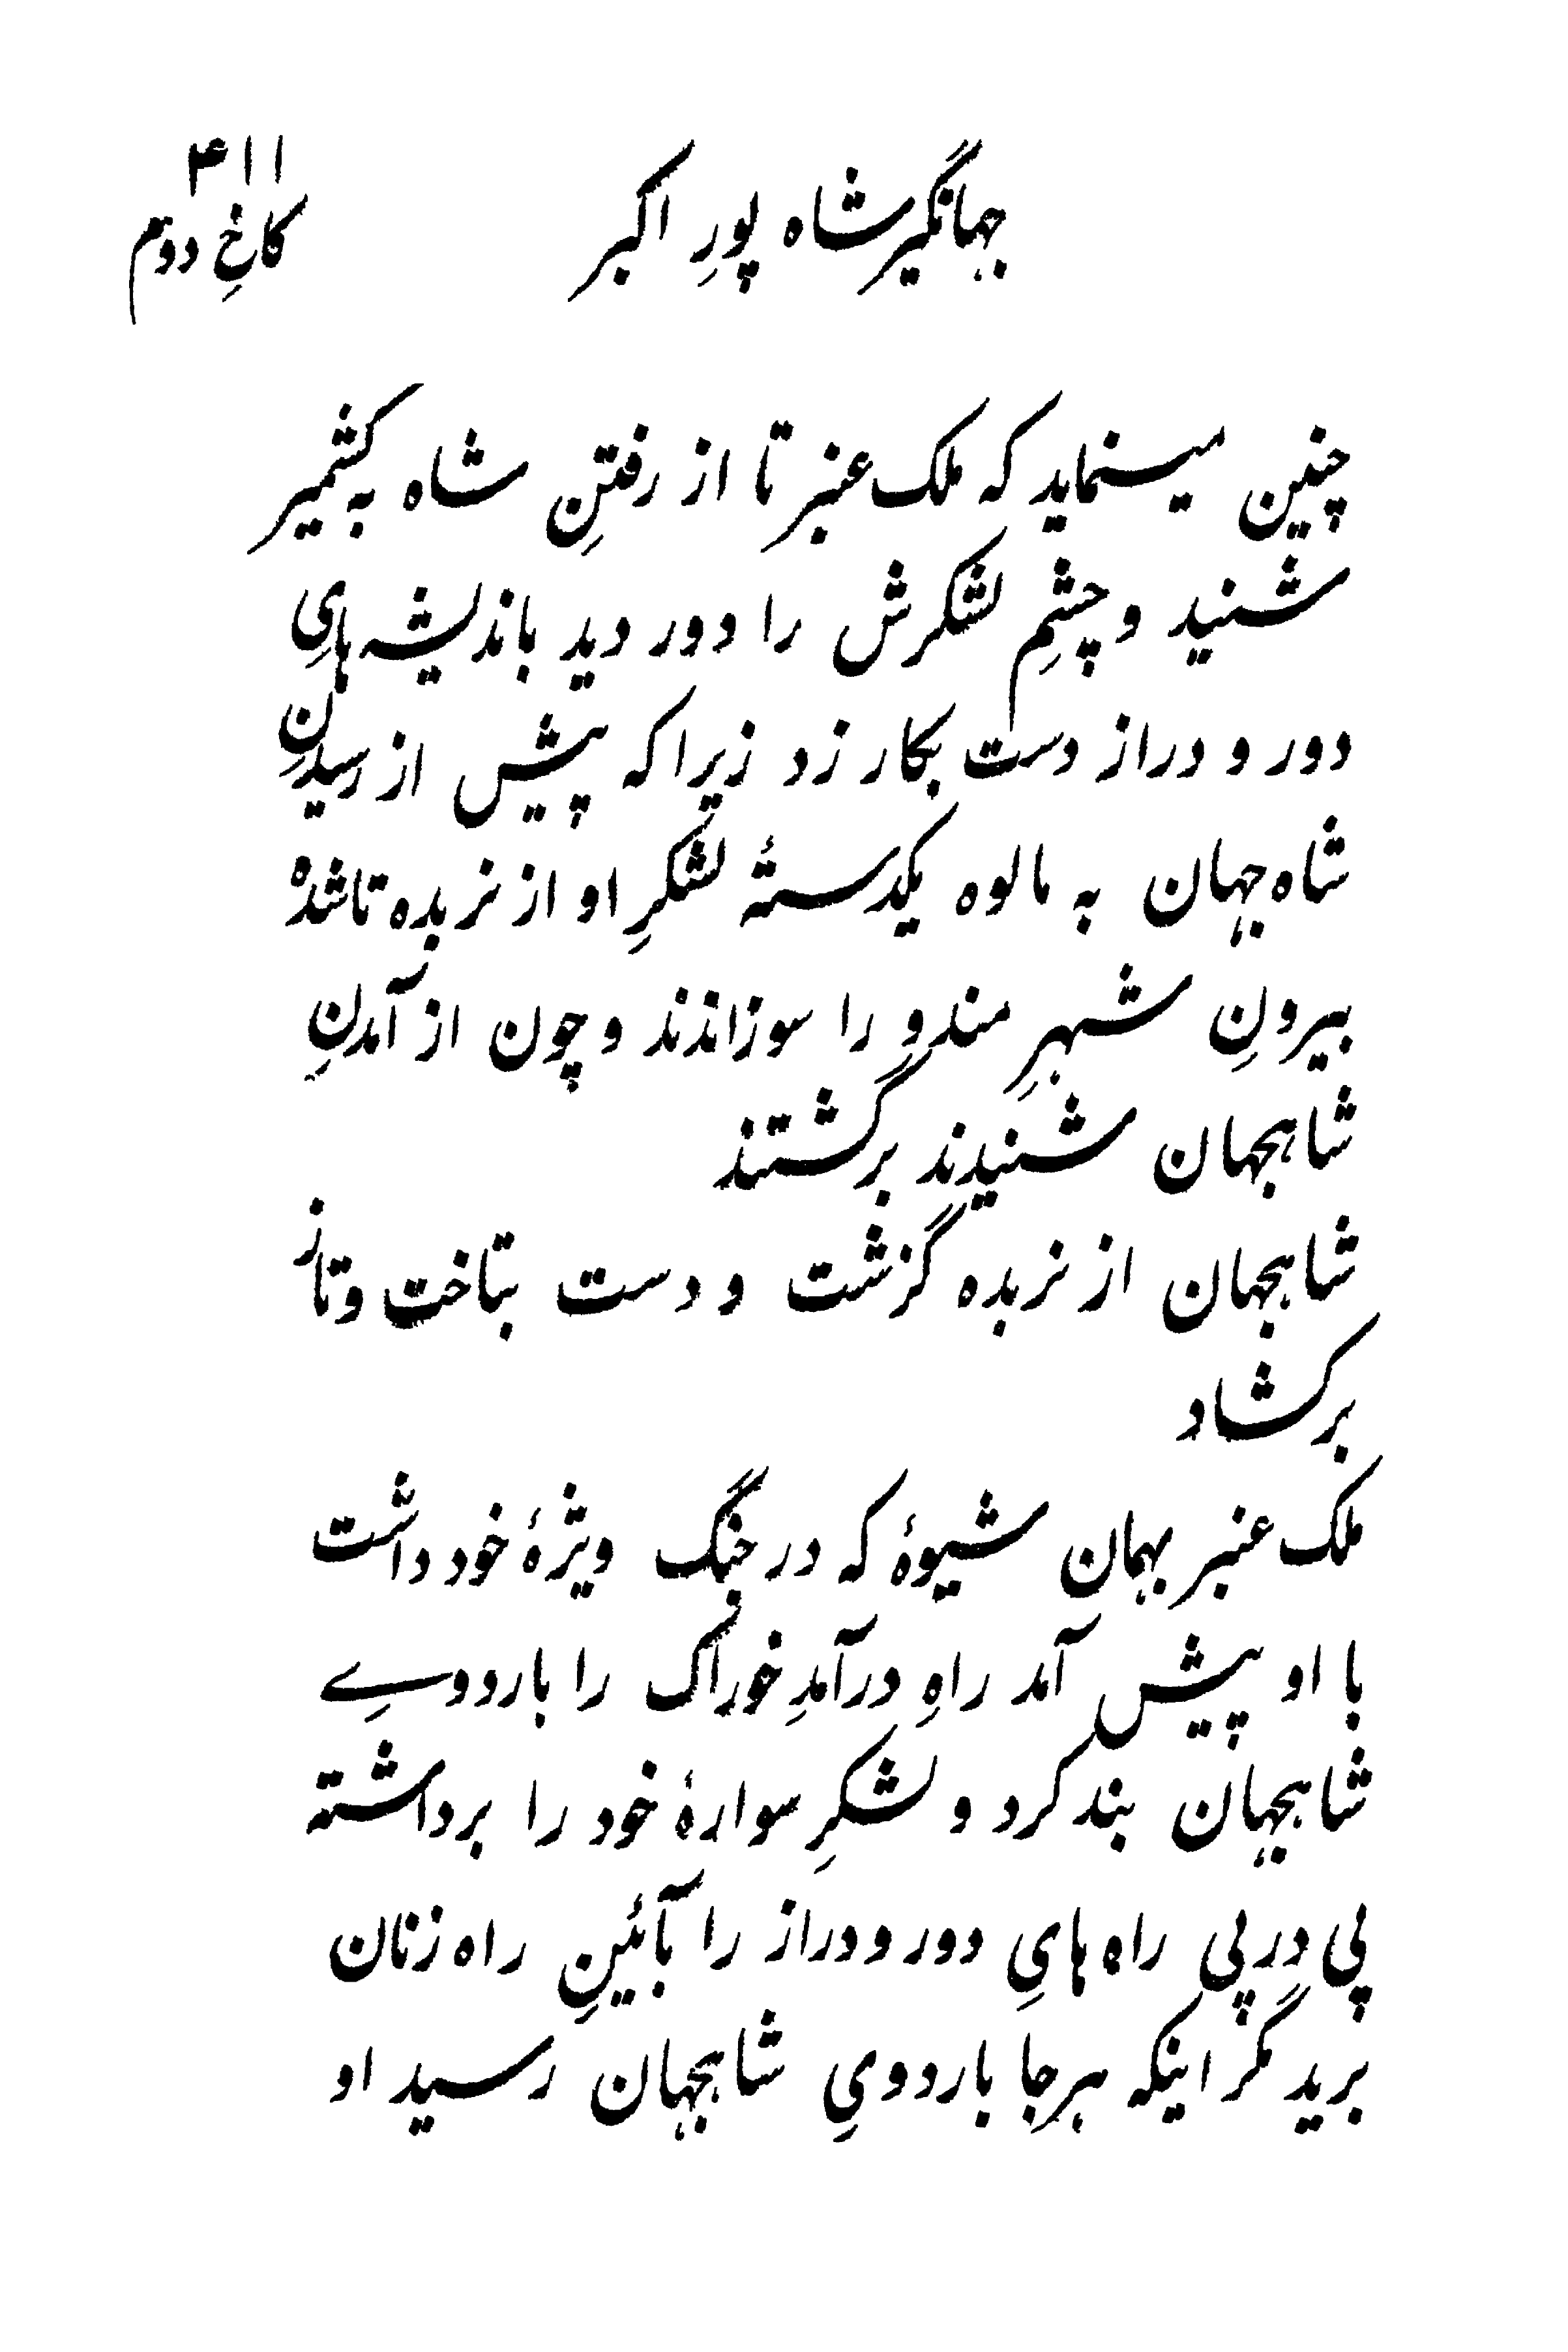 جهانگیرشاه پورِ اکبر
۴۱۱
کاخِ دوم
چنین مینماید که ملک عنبر تا از رفتنِ شاه به کشمیر
شنید و چشمِ لشکرش را دور دید باندیشه‌هایِ
دور و دراز دست بکار زد زیرا که پیش از رسیدنِ
شاه جهان به مالوه یکدستهٔ لشکرِ او از نربده تا شده
بیرونِ شهرِ مندو را سوزاندند و چون از آمدنِ
شاهجهان شنیدند برگشتند
شاهجهان از نربده گزشت و دست بتاخت و تاز
برکشاد
ملک عنبر بهمان شیوهٔ که در جنگ ویژهٔ خود داشت
با او پیش آمد راهِ درآمدِ خوراک را باردوےِ
شاهجهان بند کرد و لشکرِ سوارهٔ خود را برداشته
پی در پی راه هایِ دور و دراز را بآئینِ راه زنان
برید مگر اینکه هرجا باردویِ شاهجهان رسید او